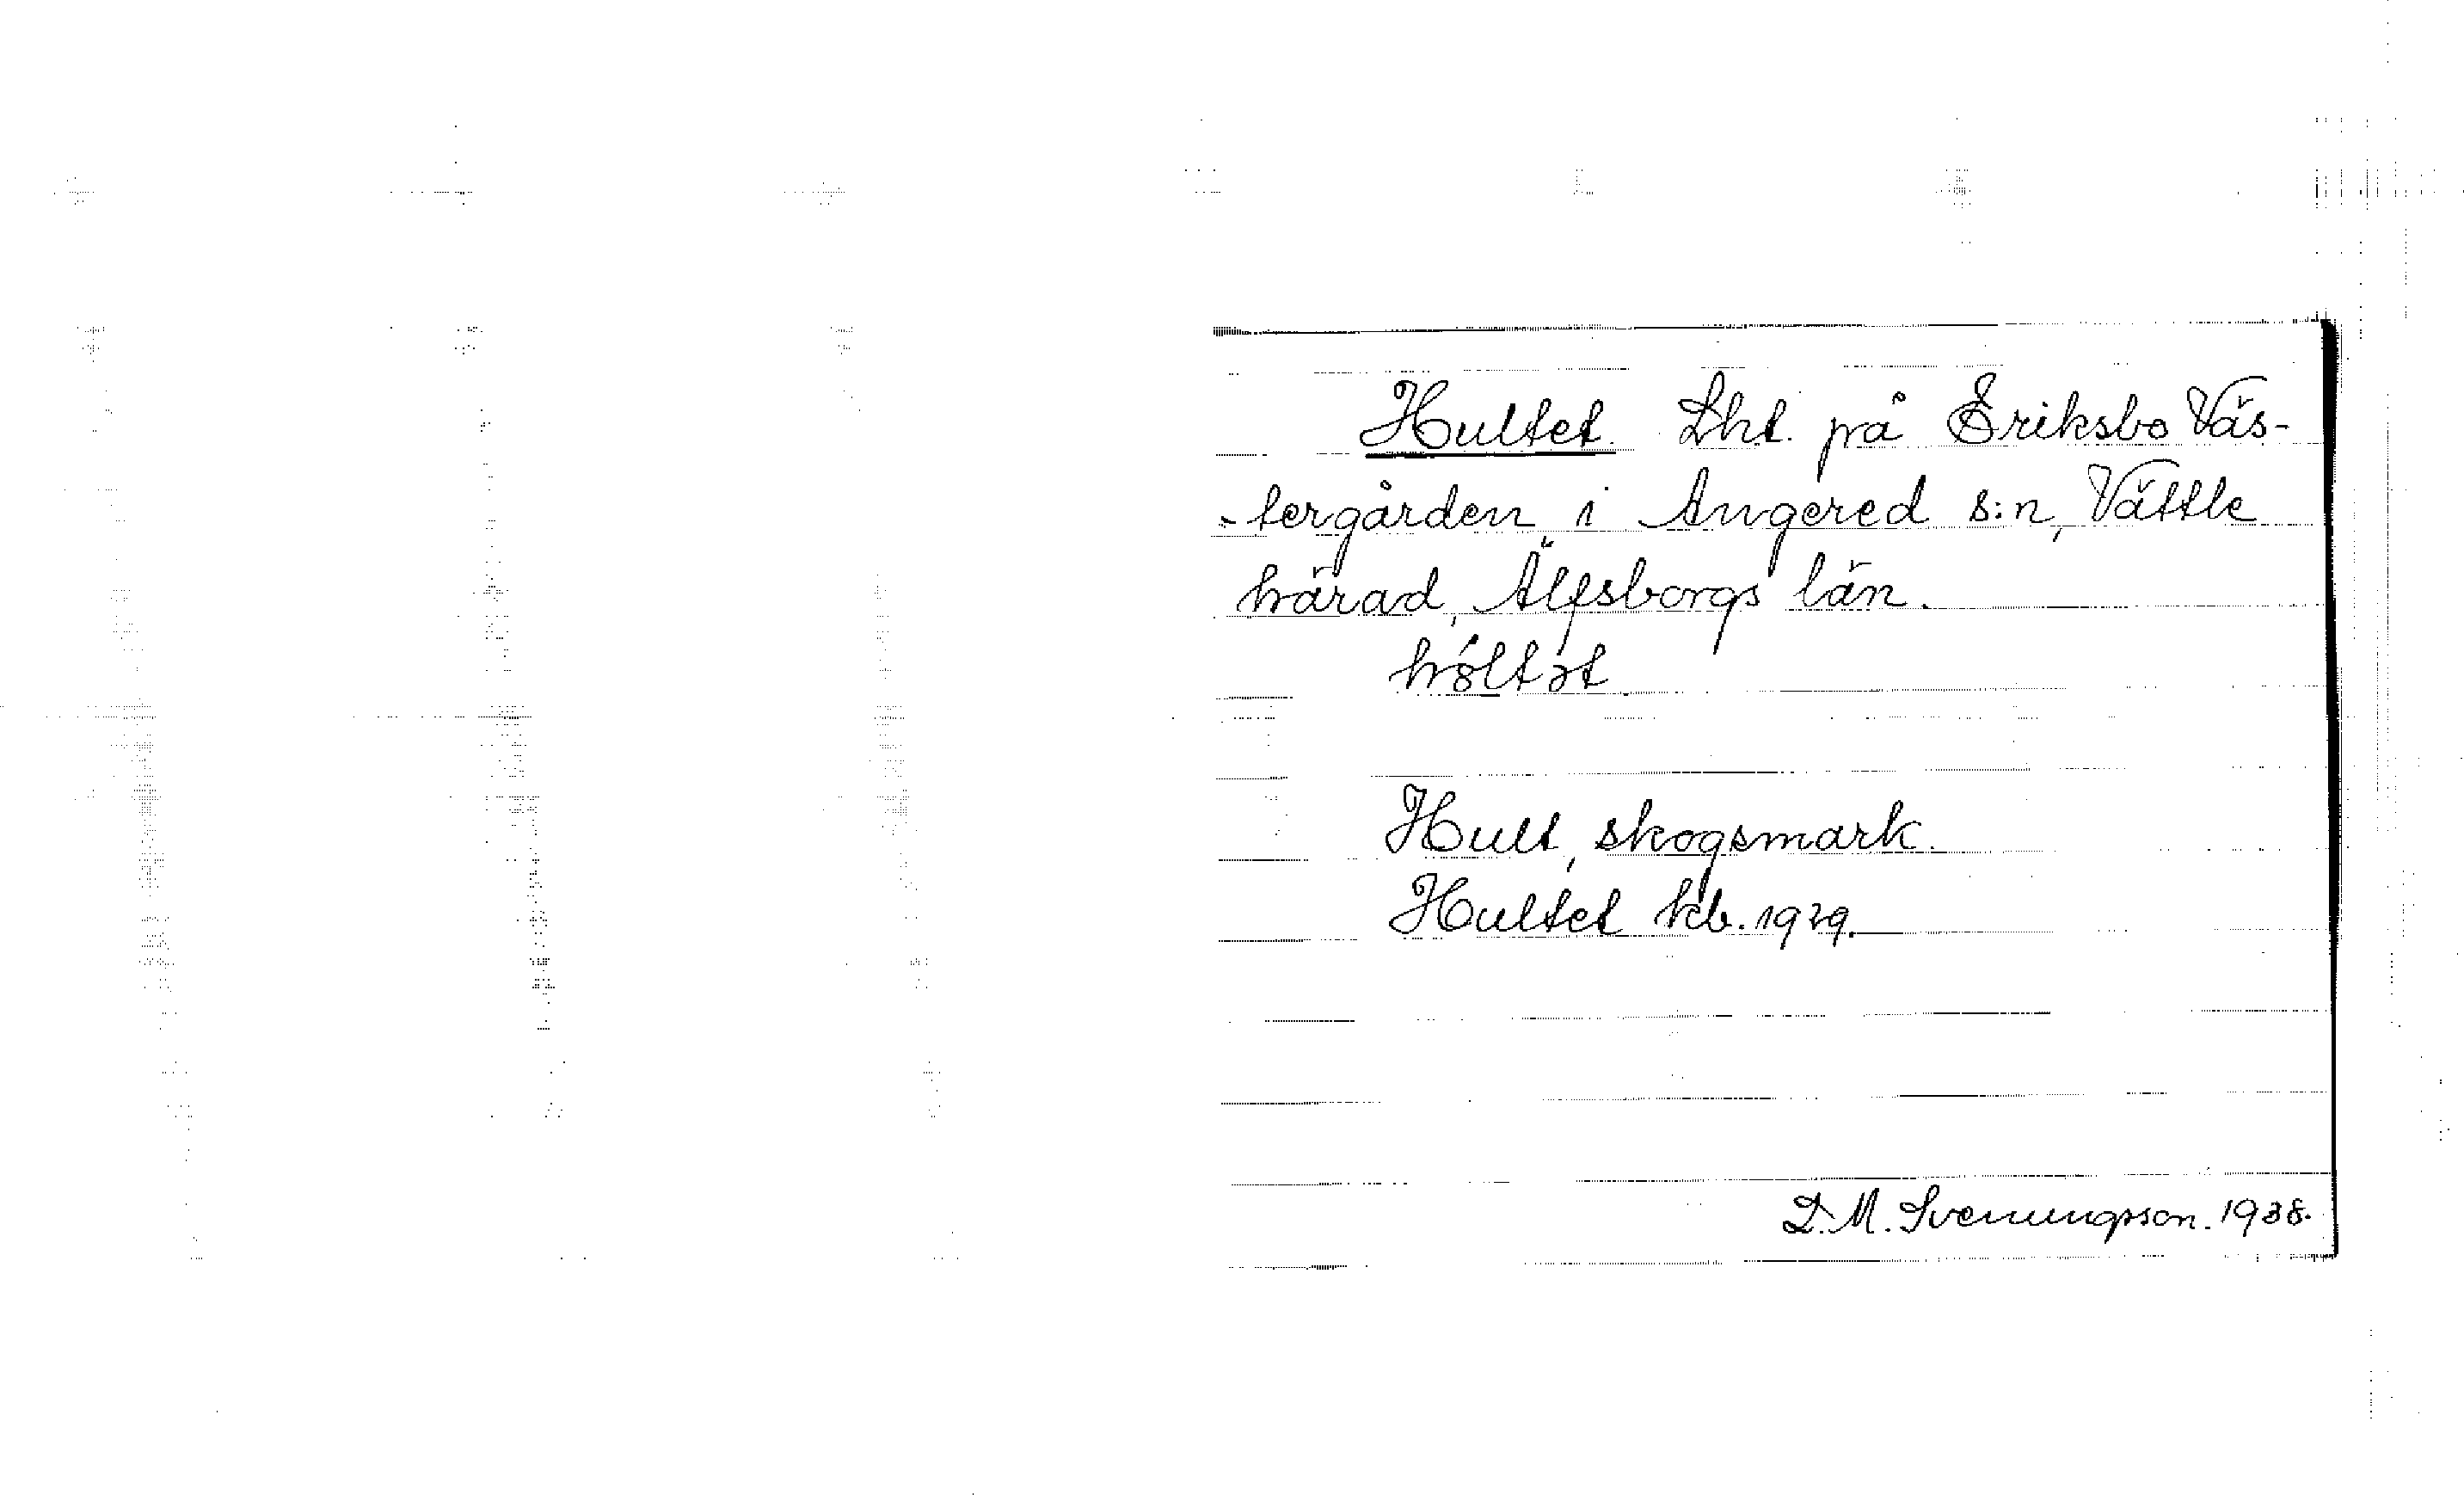 Hultet. Lht. på Eriksbo Väs-
-tergården i Angered s:n, Vättle
härad, Älfsborgs län.
Hult, skogsmark.
Hultet kb. 1929.
D. M. Svenungsson. 1938.